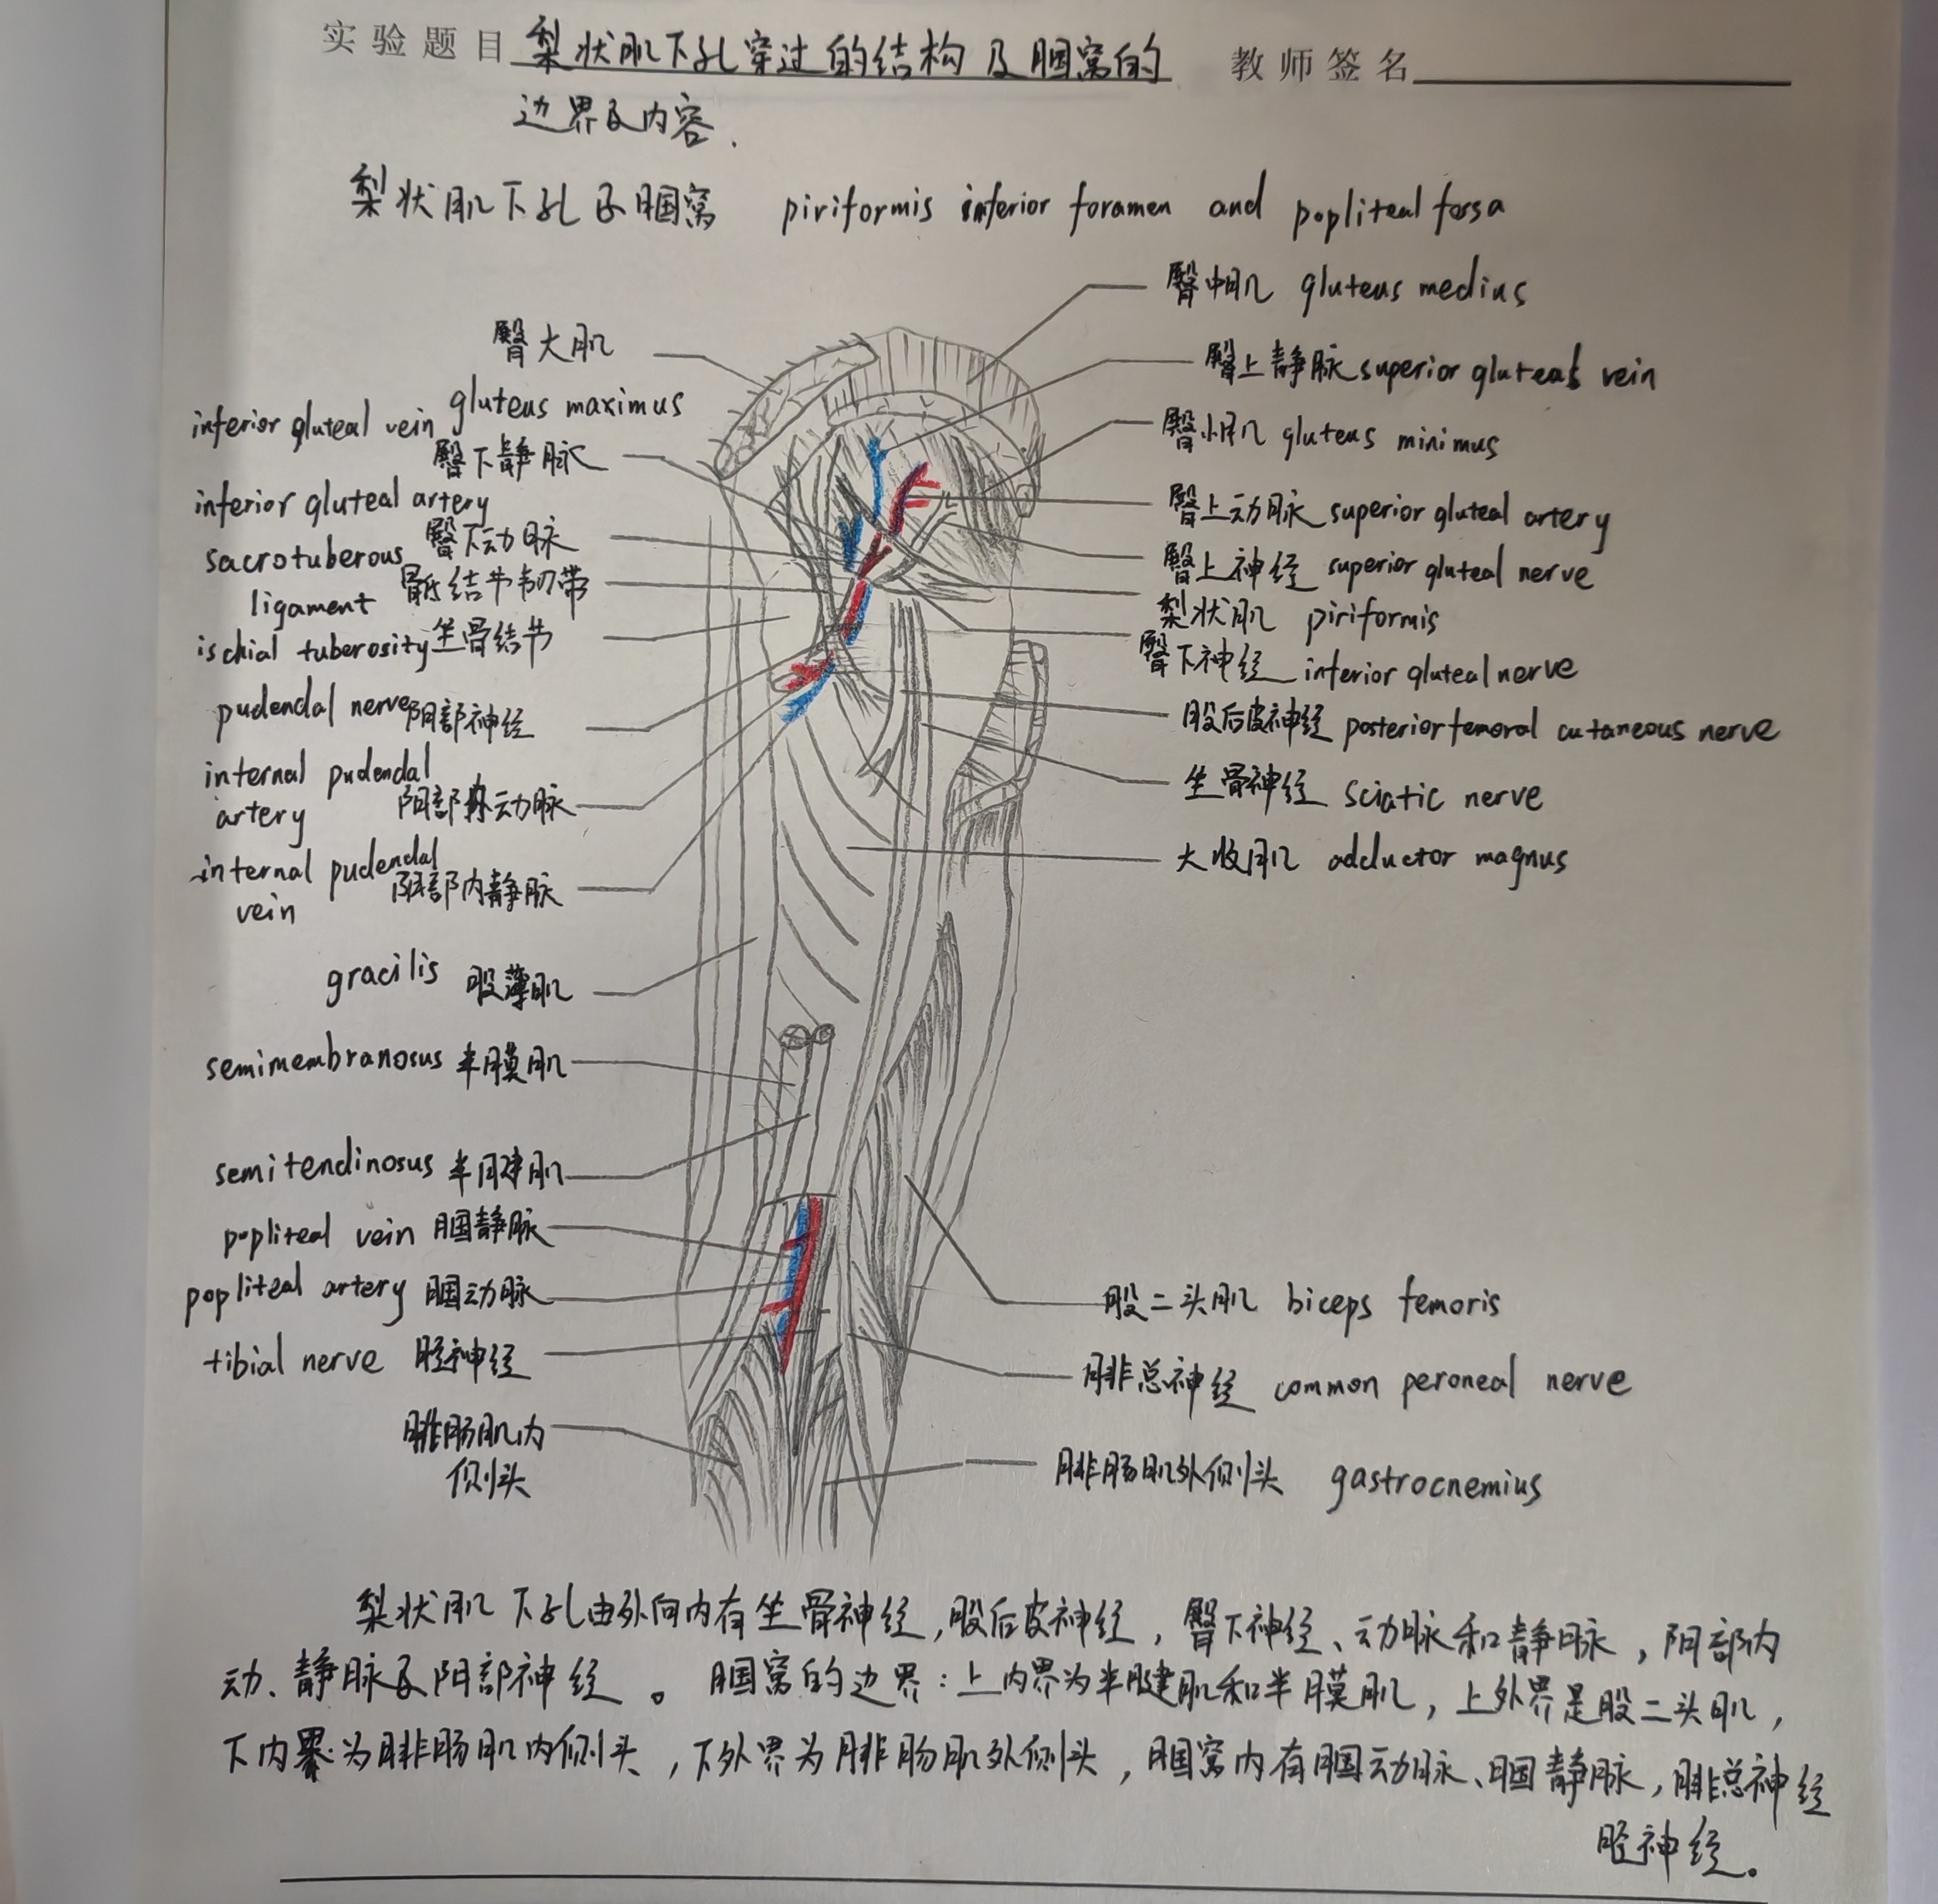 实验题目 梨状肌下孔穿过的结构及腘窝的 教师签名
边界及内容.
梨状肌下孔及腘窝 piriformis inferior foramen and popliteal fossa
臀中肌 gluteus medius
臀大肌
gluteus maximus
臀上静脉 superior gluteal vein
inferior gluteal vein
臀下静脉
臀小肌 gluteus minimus
inferior gluteal artery
臀下动脉
臀上动脉 superior gluteal artery
sacrotuberous
ligament
骶结节韧带
臀上神经 superior gluteal nerve
梨状肌 piriformis
ischial tuberosity 坐骨结节
臀下神经 inferior gluteal nerve
pudendal nerve 阴部神经
股后皮神经 posterior femoral cutaneous nerve
internal pudendal
artery
阴部内动脉
坐骨神经 sciatic nerve
大收肌 adductor magnus
internal pudendal
vein
阴部内静脉
gracilis 股薄肌
semimembranosus 半膜肌
semitendinosus 半腱肌
popliteal vein 腘静脉
popliteal artery 腘动脉
股二头肌 biceps femoris
tibial nerve 胫神经
腓总神经 common peroneal nerve
腓肠肌内
侧头
腓肠肌外侧头 gastrocnemius
梨状肌下孔由外向内有坐骨神经,股后皮神经,臀下神经、动脉和静脉,阴部内
动、静脉及阴部神经。腘窝的边界:上内界为半腱肌和半膜肌,上外界是股二头肌,
下内界为腓肠肌内侧头,下外界为腓肠肌外侧头,腘窝内有腘动脉、腘静脉,腓总神经
胫神经。